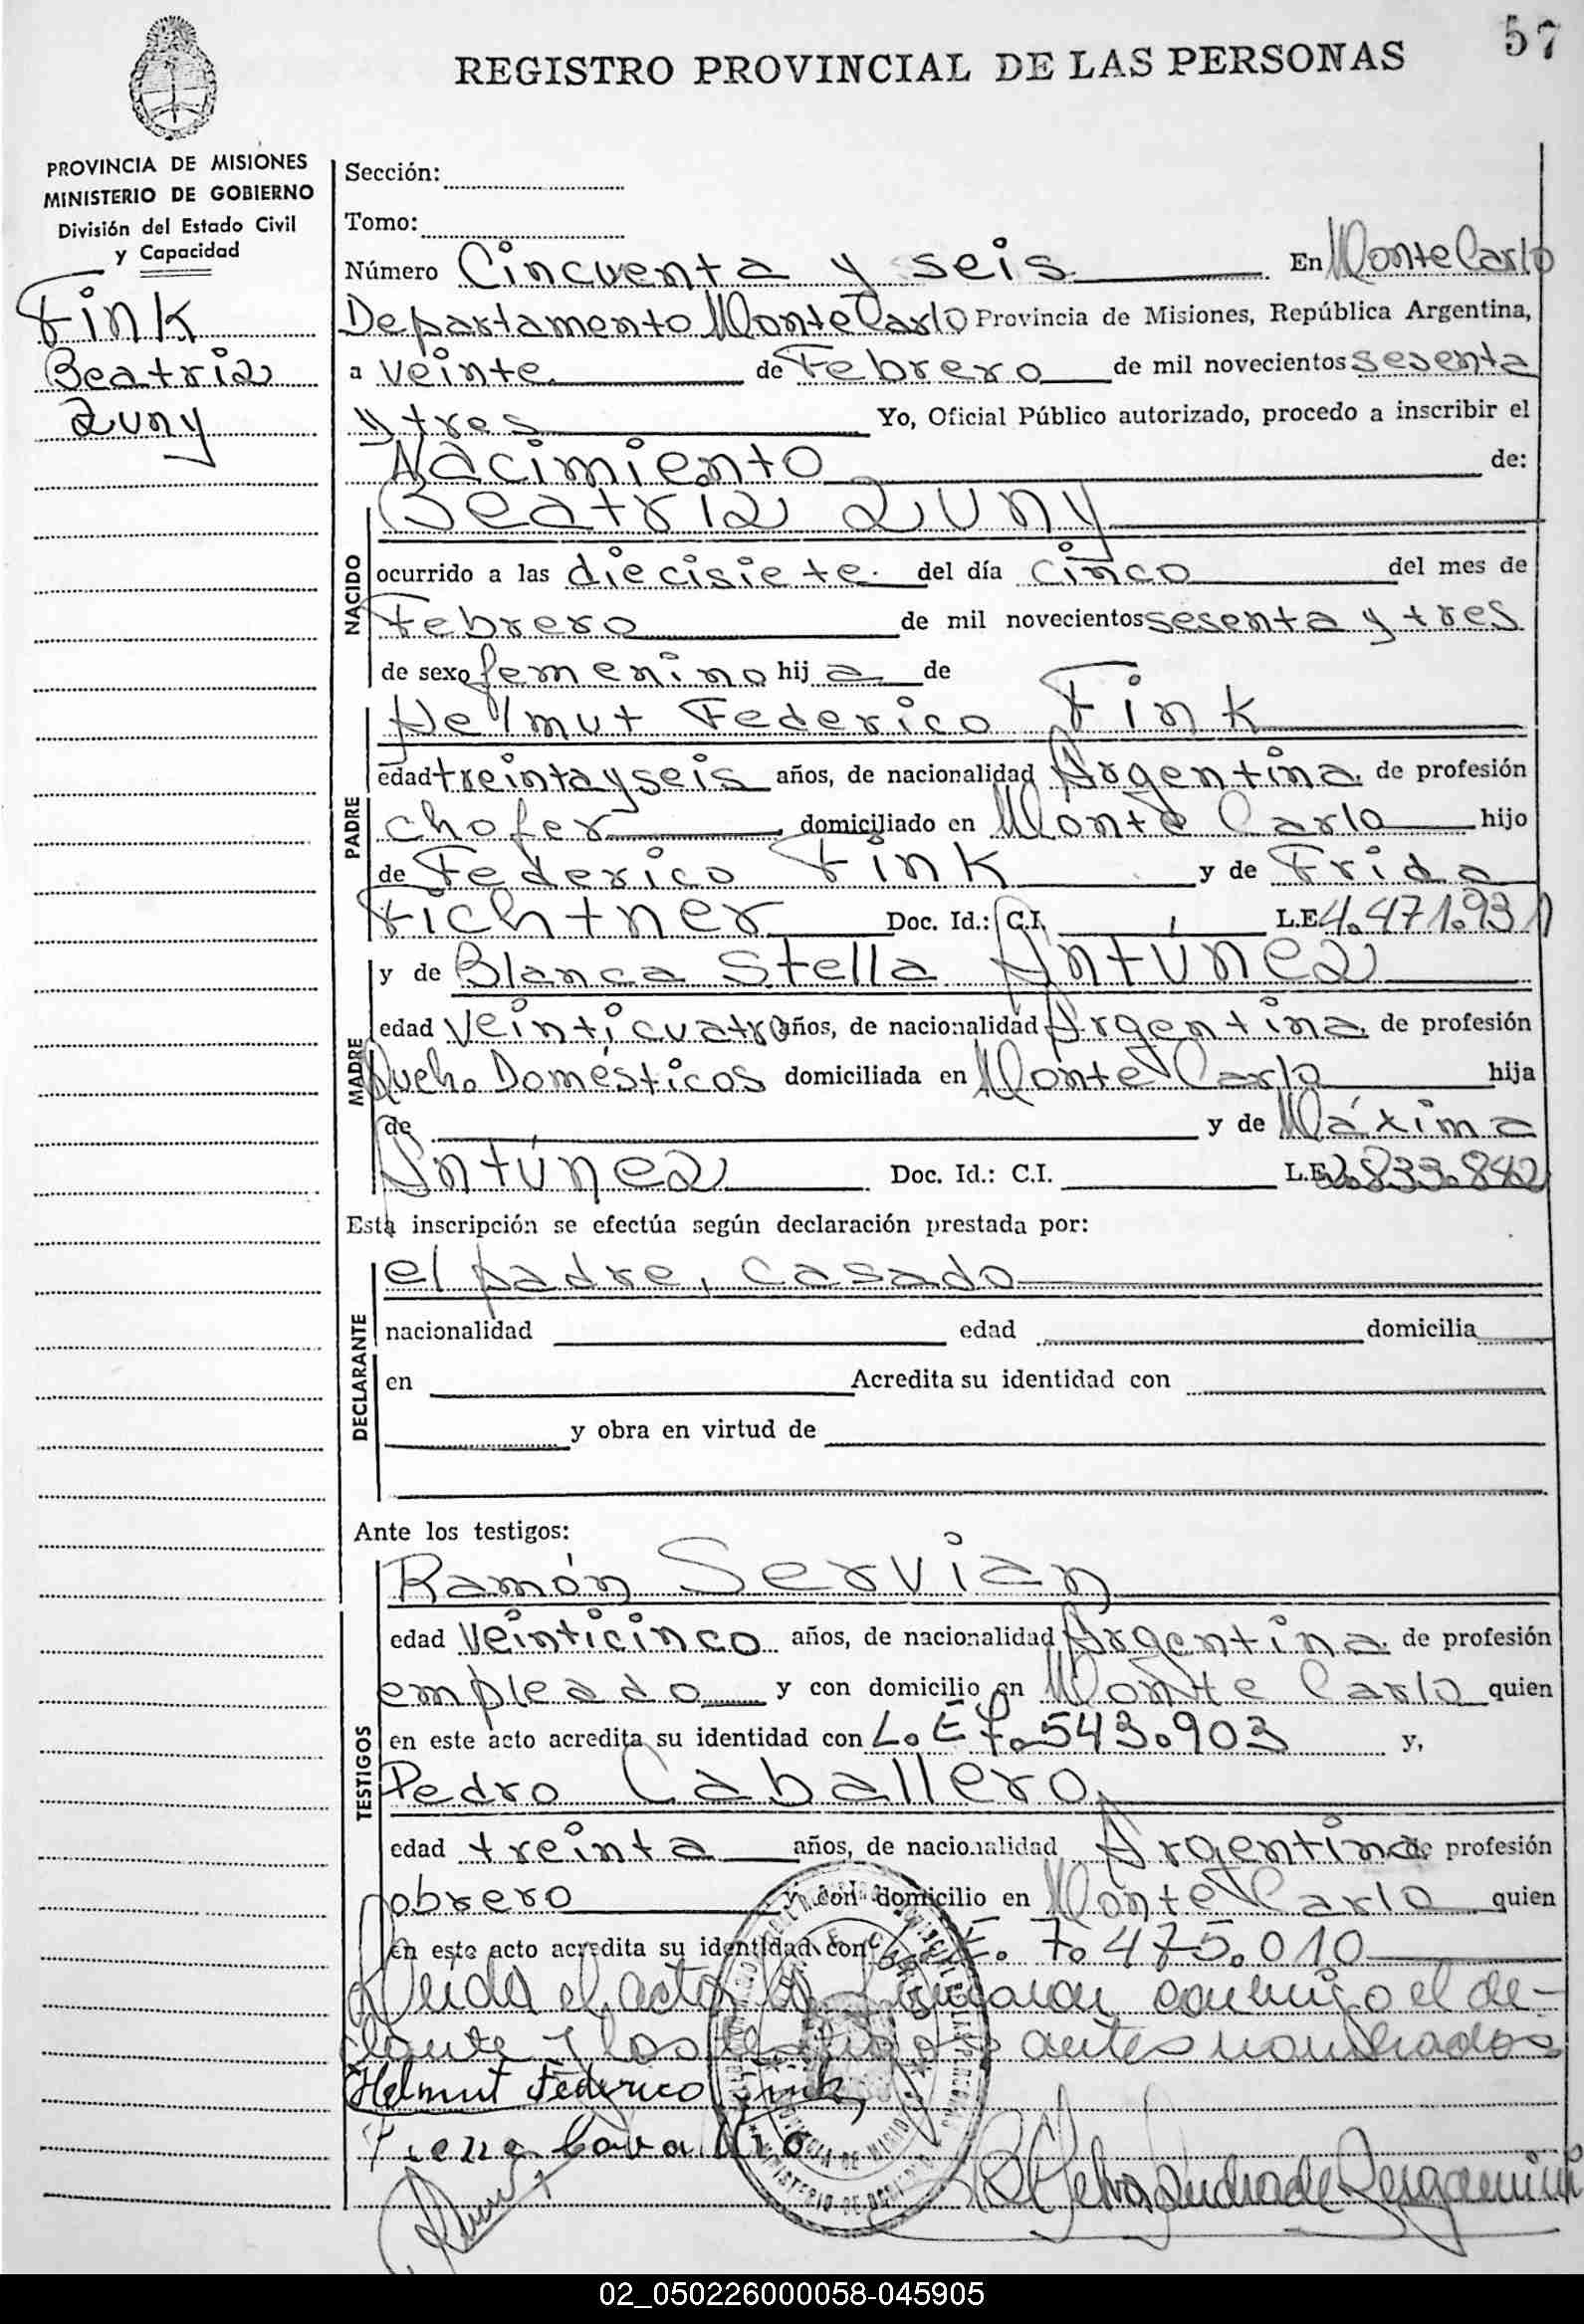 57
REGISTRO PROVINCIAL DE LAS PERSONAS
PROVINCIA DE MISIONES
MINISTERIO DE GOBIERNO
División del Estado Civil
y Capacidad
Fink
Beatriz
Zuny
Sección:
Tomo:
Número Cincuenta y seis En Monte Carlo
Departamento Monte Carlo Provincia de Misiones, República Argentina,
a veinte de Febrero de mil novecientos sesenta
y tres Yo, Oficial Público autorizado, procedo a inscribir el
Nacimiento de:
NACIDO
Beatriz Zuny
ocurrido a las diecisiete del día cinco del mes de
Febrero de mil novecientos sesenta y tres
de sexo femenino hij a de
PADRE
Helmut Federico Fink
edad treinta y seis años, de nacionalidad Argentina de profesión
chofer domiciliado en Monte Carlo hijo
de Federico Fink y de Frida
Fichtner Doc. Id.: C.I. L.E. 4.471.931
MADRE
y de Blanca Stella Antúnez
edad veinticuatro años, de nacionalidad Argentina de profesión
Queh. Domésticos domiciliada en Monte Carlo hija
de y de Máxima
Antúnez Doc. Id.: C.I. L.E. 2.833.842
Esta inscripción se efectúa según declaración prestada por:
DECLARANTE
el padre, casado
nacionalidad edad domicilia
en Acredita su identidad con
y obra en virtud de
Ante los testigos:
TESTIGOS
Ramón Servian
edad veinticinco años, de nacionalidad Argentina de profesión
empleado y con domicilio en Monte Carlo quien
en este acto acredita su identidad con L.E 7.543.903 y,
Pedro Caballero
edad treinta años, de nacionalidad Argentina de profesión
obrero y con domicilio en Monte Carlo quien
en este acto acredita su identidad con L.E. 7.475.010
el acto lo firmaron conmigo el de-
clarante y los testigos antes nombrados
Helmut Federico Fink
02_050226000058-045905